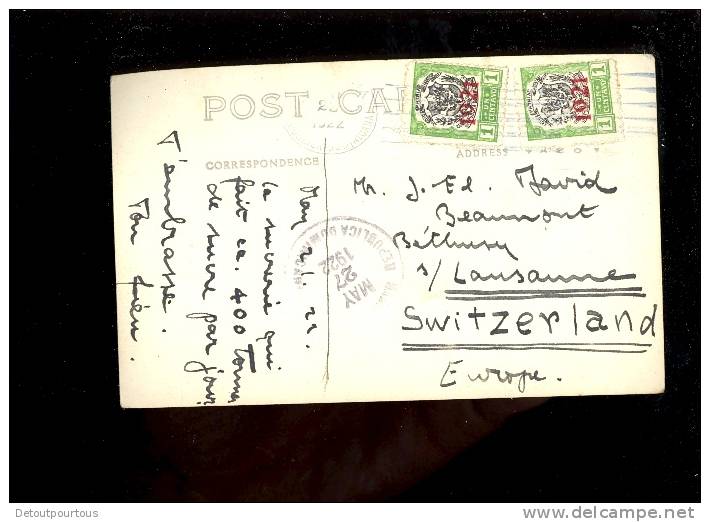 POST CAR
CORRESPONDENCE
ADDRESS
1922
1 UN CENTAVO 1
1921
1 UN CENTAVO 1
1921
REPUBLICA DOMINICANA
MAY
27
1922
May 26. 22.
la sucrerie qui
fait ca. 400 tonnes
de sucre par jour.
T'embrasse.
Ton
Mr. J.-Ed. David
Beaumont
Béthusy
s/ Lausanne
Switzerland
Europe.
Detoutpourtous
delcampe.net